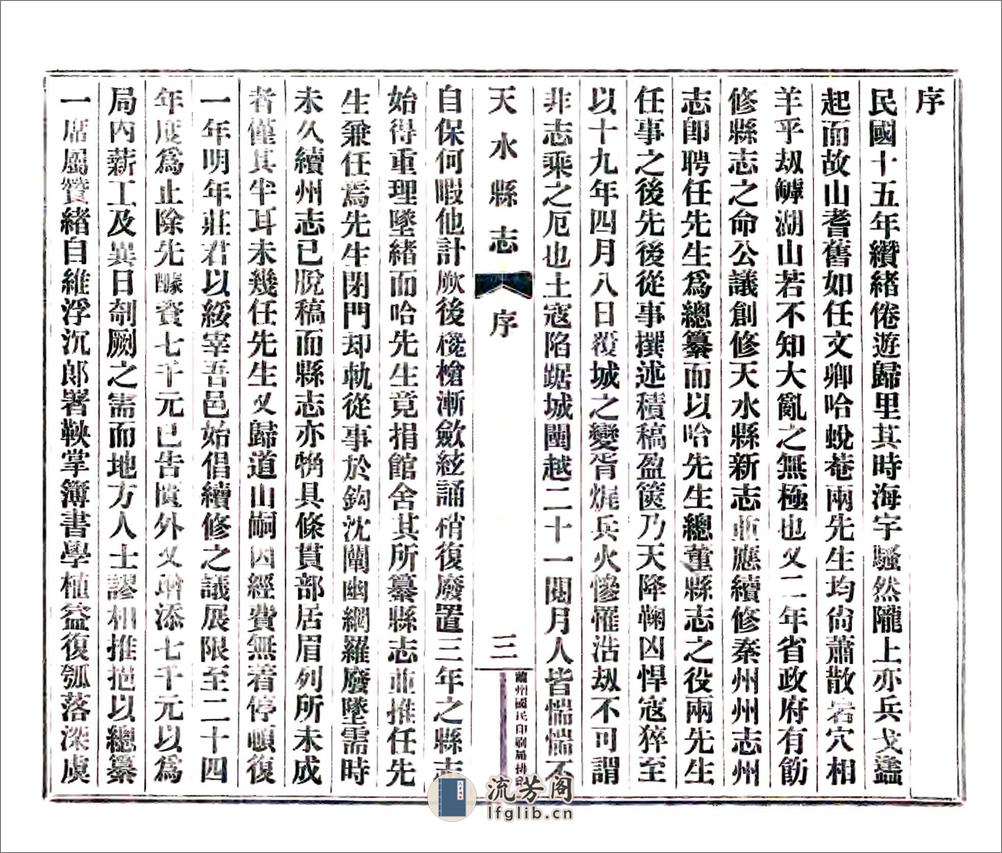 序
民國十五年纘緒倦遊歸里其時海宇騷然隴上亦兵戈蠭
起而故山耆舊如任文卿哈蛻菴兩先生均尙蕭散岩穴相
羊乎刼罅湖山若不知大亂之無極也又二年省政府有飭
修縣志之命公議創修天水縣新志並應續修秦州州志州
志卽聘任先生爲總纂而以哈先生總董縣志之役兩先生
任事之後先後從事撰述積稿盈篋乃天降鞠凶悍寇猝至
以十九年四月八日覆城之變胥燒兵火慘罹浩刼不可謂
非志乘之厄也土寇陷踞城闉越二十一閱月人皆惴惴不
天水縣志
序
三
蘭州國民印刷局排印
自保何暇他計厥後欃槍漸斂絃誦稍復廢置三年之縣志
始得重理墜緒而哈先生竟捐館舍其所纂縣志並推任先
生兼任焉先生閉門却軌從事於鈎沈闡幽網羅廢墜需時
未久續州志已脫稿而縣志亦觕具條貫部居眉列所未成
者僅其半耳未幾任先生又歸道山嗣因經費無着停頓復
一年明年莊君以綏宰吾邑始倡續修之議展限至二十四
年度爲止除先醵資七千元已告罄外又增添七千元以爲
局內薪工及異日剞劂之需而地方人士謬相推挹以總纂
一席屬贊緒自維浮沉郎署鞅掌簿書學植益復瓠落深虞
流芳阁
lfglib.cn